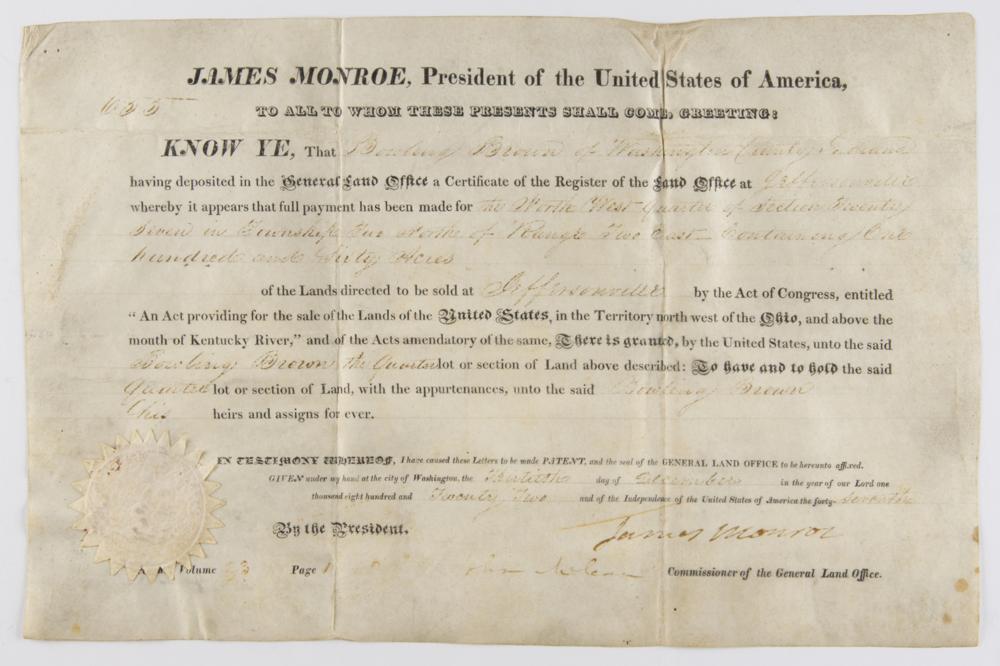 JAMES MONROE, President of the United States of America,
TO ALL TO WHOM THESE PRESENTS SHALL COME, GREETING:
KNOW YE, That Bowling Brown of Washington County Indiana
having deposited in the General Land Office a Certificate of the Register of the Land Office at Jeffersonville
whereby it appears that full payment has been made for the North West quarter of Section Twenty
Seven in Township Two North of Range Two East Containing One
hundred and Sixty Acres
of the Lands directed to be sold at Jeffersonville by the Act of Congress, entitled
"An Act providing for the sale of the Lands of the United States, in the Territory north west of the Ohio, and above the
mouth of Kentucky River," and of the Acts amendatory of the same, There is granted, by the United States, unto the said
Bowling Brown the Quarter lot or section of Land above described: To have and to hold the said
quarter lot or section of Land, with the appurtenances, unto the said Bowling Brown
his heirs and assigns for ever.
IN TESTIMONY WHEREOF, I have caused these Letters to be made PATENT, and the seal of the GENERAL LAND OFFICE to be hereunto affixed.
GIVEN under my hand at the city of Washington, the day of December in the year of our Lord one
thousand eight hundred and Twenty Two and of the Independence of the United States of America the forty-seventh
By the President. James Monroe
Volume Page John McLean Commissioner of the General Land Office.